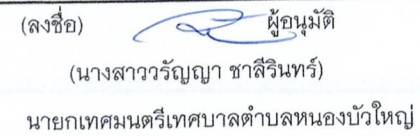 (ลงชื่อ) ผู้อนุมัติ
(นางสาววรัญญา ชาลีรินทร์)
นายกเทศมนตรีเทศบาลตำบลหนองบัวใหญ่